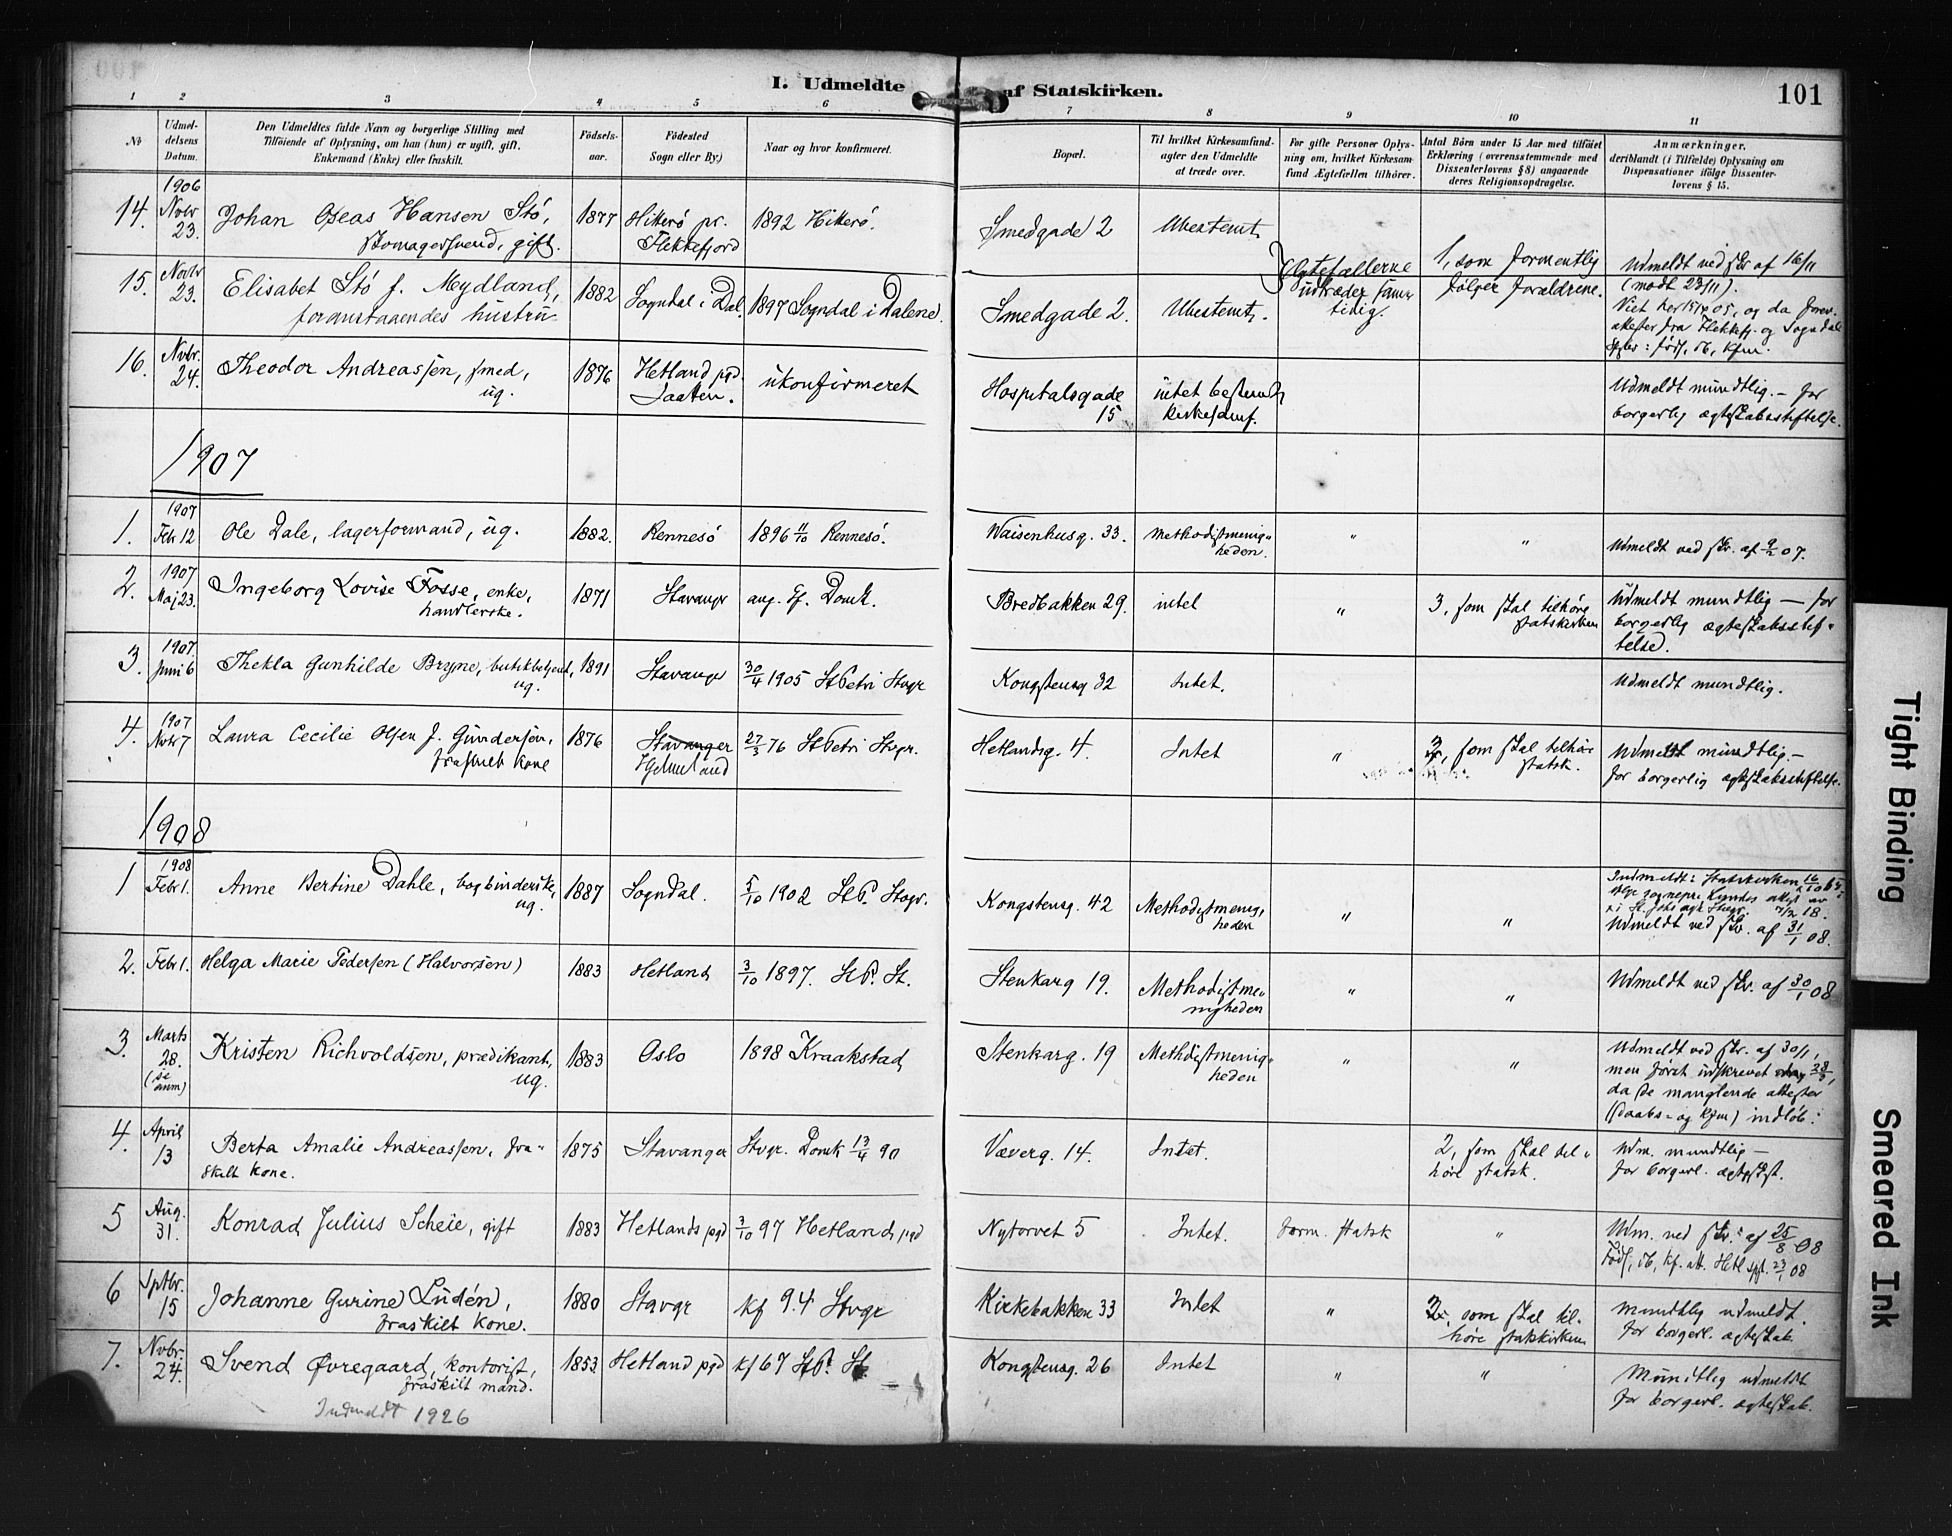 I. Udmeldte af Statskirken.
101
1 2 3 4 5 6 7 8 9 10 11
No
Udmeldelsens Datum.
Den Udmeldtes fulde Navn og borgerlige Stilling med
Tilföiende af Oplysning, om han (hun) er ugift, gift,
Enkemand (Enke) eller fraskilt.
Födselsaar.
Födested
Sogn eller By.)
Naar og hvor konfirmeret.
Bopæl.
Til hvilket Kirkesamfund
agter den Udmeldte
at træde over.
For gifte Personer Oplys-
ning om, hvilket Kirkesam-
fund Ægtefællen tilhörer.
Antal Börn under 15 Aar med tilföiet
Erklæring (overensstemmende med
Dissenterlovens § 8) angaaende
deres Religionsopdragelse.
Anmærkninger,
deriblandt (i Tilfælde) Oplysning om
Dispensationer ifölge Dissenter-
lovens § 15.
14. 1906 Novbr 23. Johan Oseas Hansen Stö, skomagersvend, gift. 1877 Hitterö pr. Flekkefjord 1892 Hitterö. Smedgade 2 Ubestemt
Ægtefællerne udtræder samtidig.
1, som formentlig følger forældrene.
Udmeldt ved skr af 16/11 (modt 23/11).
15. Novbr 23. Elisabet Stö f. Mydland, foranstaaendes hustru 1882 Sogndal i Dal. 1897 Sogndal i Dalene. Smedgade 2. Ubestemt.
Viet her 05, og da forev. attester fra Flekkefj. og Sogndal
16. Nvbr. 24. Theodor Andreassen, smed, ug. 1876 Hetland pgd. Jaatten. ukonfirmeret Hospitalsgade 15 intet bestemt kirkesamf. Udmeldt mundtlig. – for borgerlig ægteskabsstiftelse.
1907
1. 1907 Feb 12 Ole Dale, lagerformand, ug. 1882. Rennesö 1896 11/10 Rennesö. Waisenhusg. 33. Methodistmenigheden. " " Udmeldt ved skr. af 9/2 07.
2. 1907 Maj 23. Ingeborg Lovise Fosse, enke, handlerske. 1871 Stavanger ang. kf. Domk. Bredbakken 29. intet " 3, som skal tilhöre statskirken Udmeldt mundtlig – for borgerlig ægteskabsstiftelse.
3. 1907. Juni 6 Thekla Gunhilde Bryne, butikbetjent, ug. 1891 Stavanger 30/4 1905 St Petri Stvgr Kongstensg 32 Intet. Udmeldt mundtlig.
4. 1907 Nvbr 7 Laura Cecilie Olsen f. Gundersen, fraskilt kone 1876 Stavanger Hjelmeland 27/3 76 St Petri Stvgr. Hetlandsg. 4. Intet " 3, som skal tilhöre statsk. Udmeldt mundtlig – for borgerlig ægteskabsstiftelse.
1908
1 1908 Febr 1. Anne Bertine Dahle, bogbinderske, ug. 1887 Sogndal. 5/10 1902 St P. Stvgr. Kongstensg. 42 Methodistmenigheden " " Indmeldt i Statskirken
Udmeldt ved skr. af 31/1 08.
2. Febr 1. Helga Marie Pedersen (Halvorsen) 1883 Hetland 3/10 1897. St P. St. Stenkarg 19. Methodistmenigheden " " Udmeldt ved skr. af 30/1 08
3. Marts 28. (se anm) Kristen Richvoldsen, prædikant, ug. 1883 Oslo 1898 Kraakstad Stenkarg. 19 Methdistmenigheden " " Udmeldt ved skr. af 30/1, men først udskrevet 28/3, da de manglende attester (daabs- og kfm) indløb.
4. April 13 Berta Amalie Andreassen, fraskilt kone. 1875 Stavanger Stvgr. Domk 13/4 90 Væverg. 14. Intet. 2, som skal tilhöre statsk. Udm. mundtlig – for borgerl. ægtesk.st.
5 Aug. 31. Konrad Julius Scheie, gift 1883 Hetlands pgd 3/10 97 Hetland pgd Nytorvet 5 Intet. Form. statsk " Udm. ved skr. af 25/8 08
Föds, db, kf. att. Hetl spr. 23/1 08
6 Septbr. 15 Johanne Gurine Lüdén, fraskilt kone. 1880 Stavgr kf 94 Stvgr Kirkebakken 33 Intet " 2, som skal tilhöre statskirken Mundtlig udmeldt. for borgerl. ægteskab.
7. Nvbr. 24. Svend Øvregaard, kontorist, fraskilt mand. 1853 Hetland pgd kf 67 St P. St. Kongstensg. 26 Intet " " Mündtlig udmeldt for borgerl. ægteskab.
Indmeldt 1926
Tight Binding
Smeared Ink